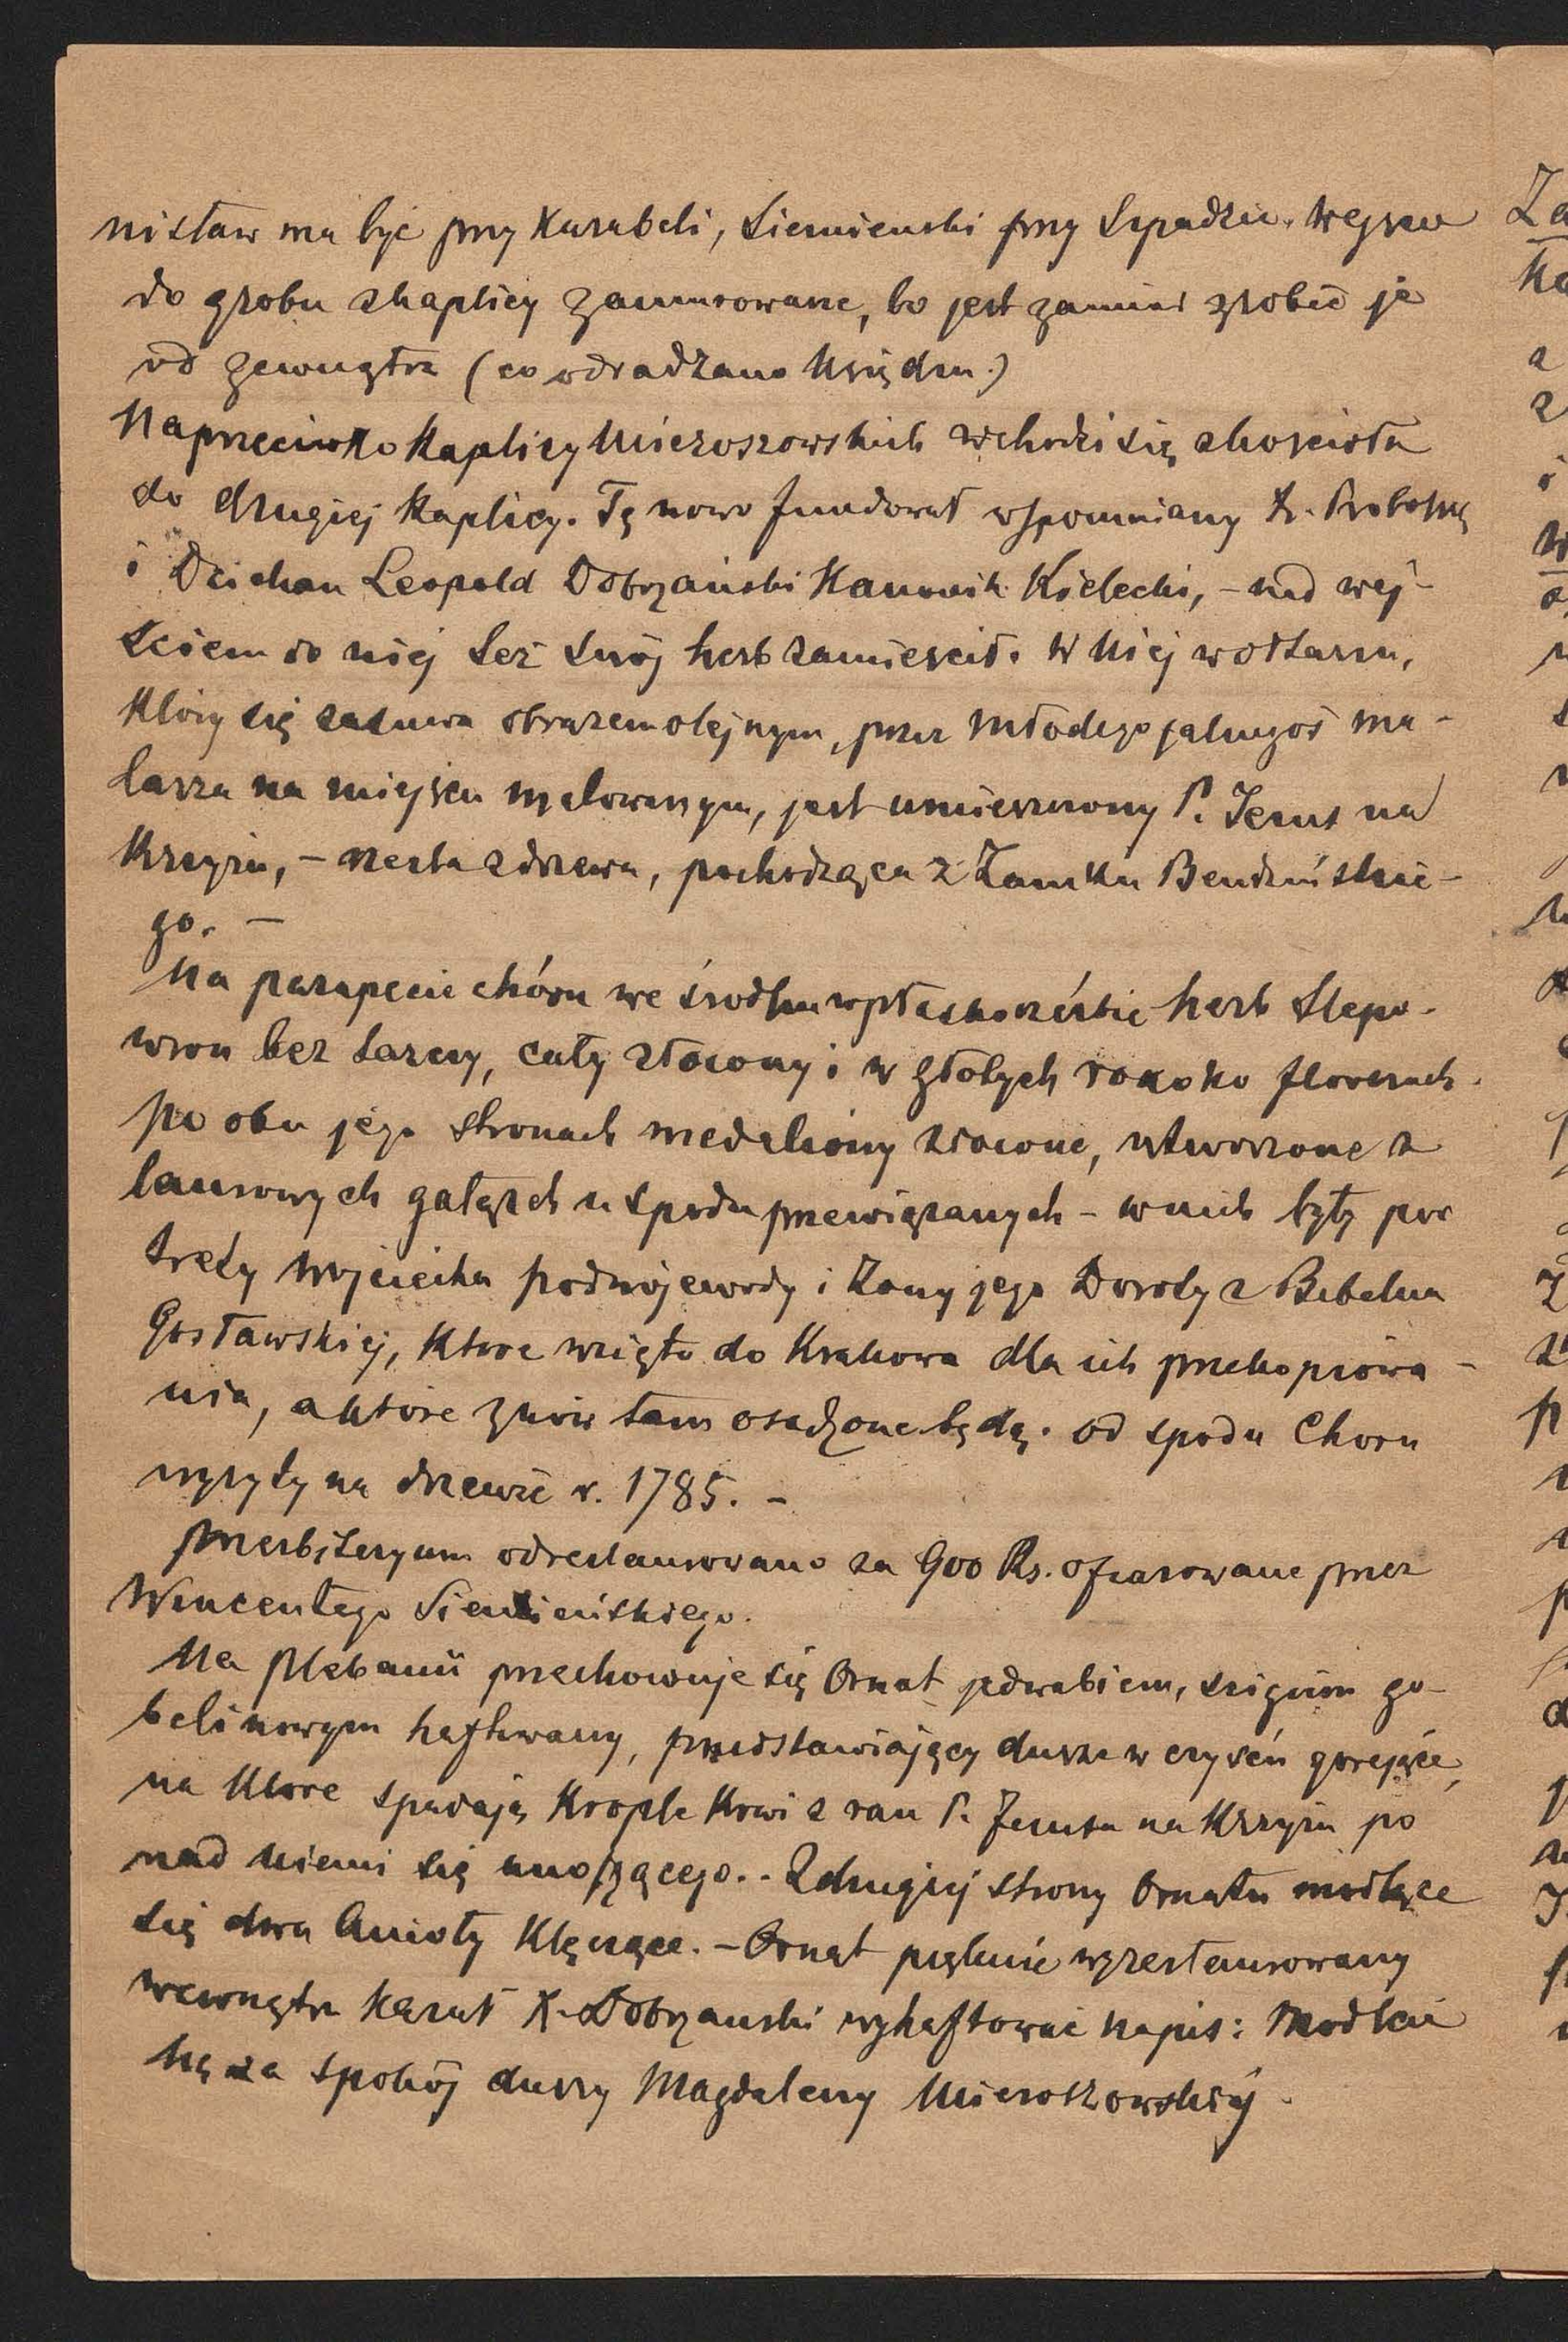 nisław ma być przy Karabeli, Siemieński przy Szpadzie. Wejscie
do grobu z kaplicy zamurowane, bo jest zamiar zrobić je
od zewnątrz (co odradzano Księdzu.)
Naprzeciwko Kaplicy Mieroszowskich wchodzi się z kościoła
do drugiej Kaplicy. Tę nowo fundował wspomniany X. Proboszcz
i Dziekan Leopold Dobrzański Kanonik Kielecki, – nad wej-
ściem do niej też swój herb zamieścił. W Niej w ołtarzu,
który się zasuwa obrazem olejnym, przez młodego jakiegoś ma-
larza na miejscu malowanym, jest umieszczony P. Jezus na
Krzyżu, – rzeźba z drzewa, pochodząca z Zamku Bendzińskie-
go. –
Na parapecie chóru we środku w płaskorzeźbie herb Ślepo-
wron bez tarczy, cały złocony i w złotych rokoko floresach.
po obu jego stronach medaliony złocone, utworzone z
laurowych gałęzch u spodu przewiązanych – w nich były por
trety Wojciecha podwojewody i żony jego Doroty z Bebelna
Gosławskiej, które wzięto do Krakowa dla ich przekopiowa-
nia, a które znów tam osadzone będą. od spodu Choru
wyryty na drzewie r. 1785. –
Presbiteryum odrestaurowano za 900 Rs. ofiarowane przez
Wincentego Siemieńskiego.
Na plebanii przechowuje się Ornat jedwabiem, ściegiem go-
belinowym haftowany, przedstawiający dusze w czyśću gorejące,
na które spadają Krople Krwi z ran P. Jezusa na Krzyżu po
nad niemi się unoszącego.. Z drugiej strony Ornatu modlące
się dwa Anioły Klęczące. – Ornat pięknie wyrestaurowany
wewnątrz kazał X. Dobrzański wyhaftować napis: Módlcie
się za spokój duszy Magdaleny Mieroszowskiej.